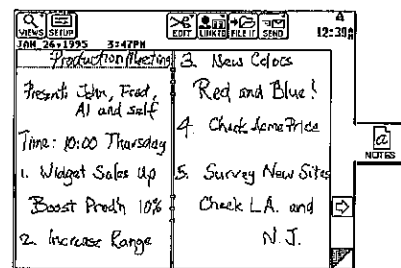 VIEWS SETUP EDIT LINKTO FILE IT SEND 12:39
JAN 26,1995 3:47PM
Production Meeting
Present: John, Fred,
Al and self
Time: 10:00 Thursday
1. Widget Sales Up
Boost Prod'n 10%
2. Increase Range
3. New Colors
Red and Blue!
4. Check Acme Price
5. Survey New Sites
Check L.A. and
N.J.
a
NOTES